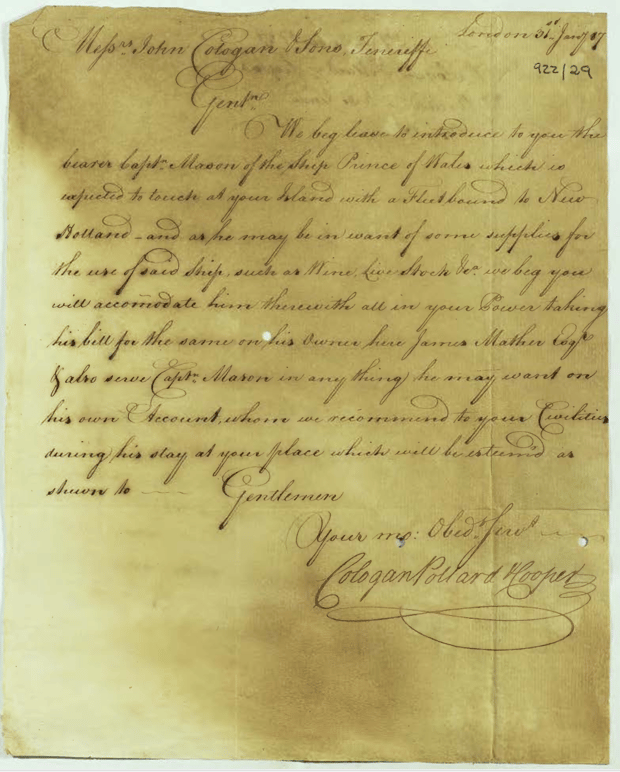 Mess.rs John Cologan & Sons, Teneriffe
London 31st Jany 87
922/29
Gentn
We beg leave to introduce to you the
bearer Captn Mason of the Ship Prince of Wales which is
expected to touch at your Island with a Fleet bound to New
Holland - and as he may be in want of some supplies for
the use of said Ship, such as Wine, Live Stock &c. we beg you
will accomodate him therewith all in your Power taking
his bill for the same on his Owner here James Mather Esqr
& also serve Captn Mason in any thing he may want on
his own Account, whom we recommend to your Civilities
during his stay at your place which will be esteem'd as
shewn to
Gentlemen
Your mo: Obedt Servts
Cologan Pollard & Cooper